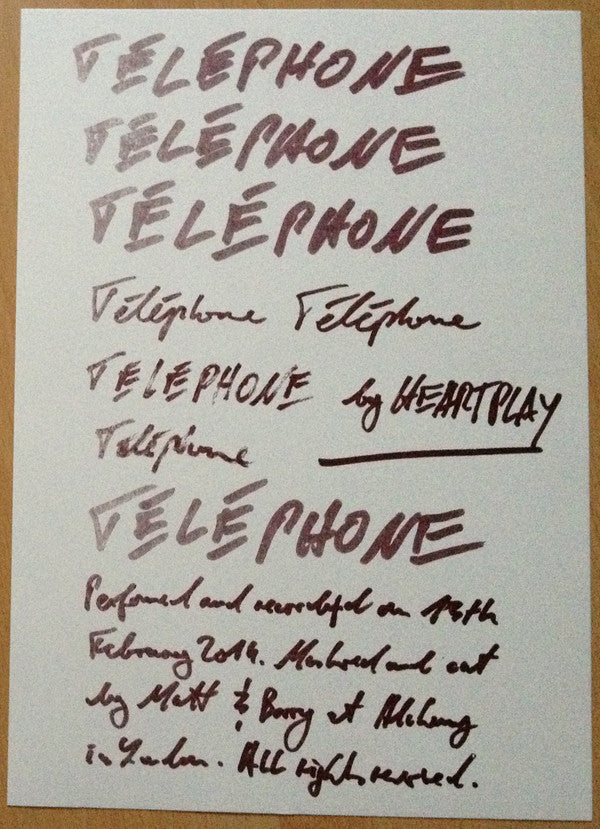 TÉLÉPHONE
TÉLÉPHONE
TÉLÉPHONE
Téléphone Téléphone
TÉLÉPHONE by HEARTPLAY
Téléphone
TÉLÉPHONE
Performed and recorded on 13th
February 2014. Mastered and cut
by Matt & Barry at Alchemy
in London. All rights reserved.